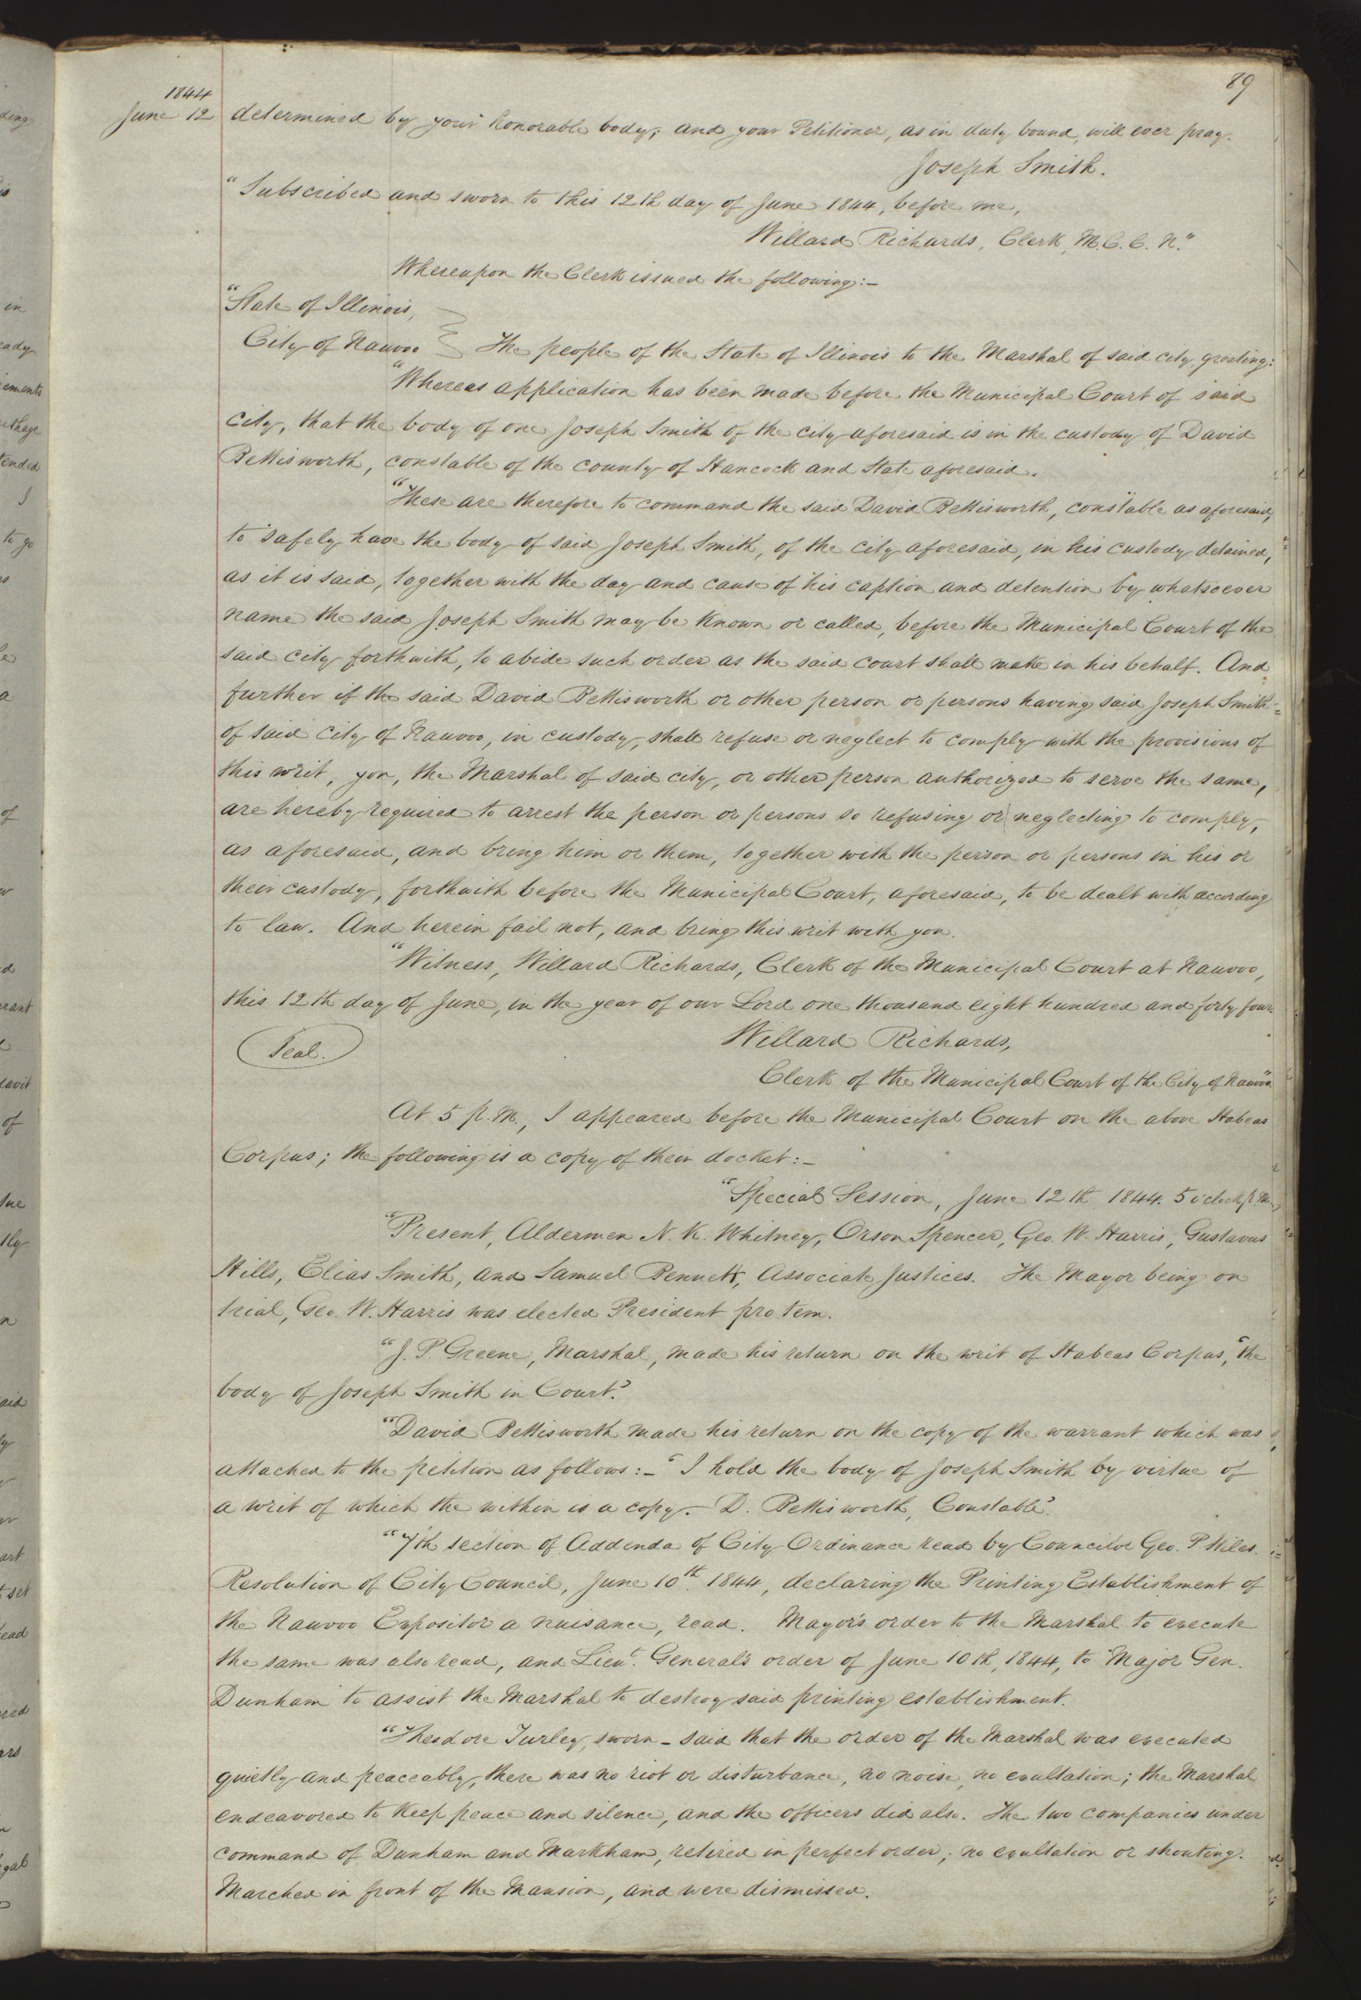 89
1844
June 12 determined by your honorable body; and your Petitioner, as in duty bound, will ever pray.
Joseph Smith.
"Subscribed and sworn to this 12th day of June 1844, before me,
Willard Richards, Clerk, M. C. C. N."
Whereupon the Clerk issued the following:—
"State of Illinois,
City of Nauvoo } The people of the State of Illinois to the Marshal of said city, greeting:
"Whereas application has been made before the Municipal Court of said
city, that the body of one Joseph Smith of the city aforesaid is in the custody of David
Bettisworth, constable of the county of Hancock and State aforesaid.
"These are therefore to command the said David Bettisworth, constable as aforesaid,
to safely have the body of said Joseph Smith, of the city aforesaid, in his custody detained,
as it is said, together with the day and cause of his caption and detention by whatsoever
name the said Joseph Smith may be known or called, before the Municipal Court of the
said city forthwith, to abide such order as the said court shall make in his behalf. And
further if the said David Bettisworth or other person or persons having said Joseph Smith
of said city of Nauvoo, in custody, shall refuse or neglect to comply with the provisions of
this writ, you, the Marshal of said city, or other person authorized to serve the same,
are hereby required to arrest the person or persons so refusing or neglecting to comply,
as aforesaid, and bring him or them, together with the person or persons in his or
their custody, forthwith before the Municipal Court, aforesaid, to be dealt with according
to law. And herein fail not, and bring this writ with you.
"Witness, Willard Richards, Clerk of the Municipal Court at Nauvoo,
this 12th day of June, in the year of our Lord one thousand eight hundred and forty four
Seal. Willard Richards,
Clerk of the Municipal Court of the City of Nauvoo."
At 5 p.m., I appeared before the Municipal Court on the above Habeas
Corpus; the following is a copy of their docket:—
"Special Session, June 12th 1844. 5 o'clock p.m.
"Present, Aldermen N. K. Whitney, Orson Spencer, Geo. W. Harris, Gustavus
Hills, Elias Smith, and Samuel Bennett, Associate Justices. The Mayor being on
trial, Geo. W. Harris was elected President pro tem.
"J. P. Greene, Marshal, made his return on the writ of Habeas Corpus, 'the
body of Joseph Smith in Court.'
"David Bettisworth made his return on the copy of the warrant which was
attached to the petition as follows:— 'I hold the body of Joseph Smith by virtue of
a writ of which the within is a copy.— D. Bettisworth, Constable.'
"7th section of Addenda of City Ordinance read by Councilor Geo. P. Stiles.
Resolution of City Council, June 10th. 1844, declaring the Printing Establishment of
the Nauvoo Expositor a nuisance, read. Mayor's order to the Marshal to execute
the same was also read, and Lieut. General's order of June 10th, 1844, to Major Gen.
Dunham to assist the Marshal to destroy said printing establishment.
"Theodore Turley, sworn — said that the order of the Marshal was executed
quietly and peaceably, there was no riot or disturbance, no noise, no exultation; the Marshal
endeavored to keep peace and silence, and the officers did also. The two companies under
command of Dunham and Markham, retired in perfect order; no exultation or shouting.
Marched in front of the Mansion, and were dismissed.